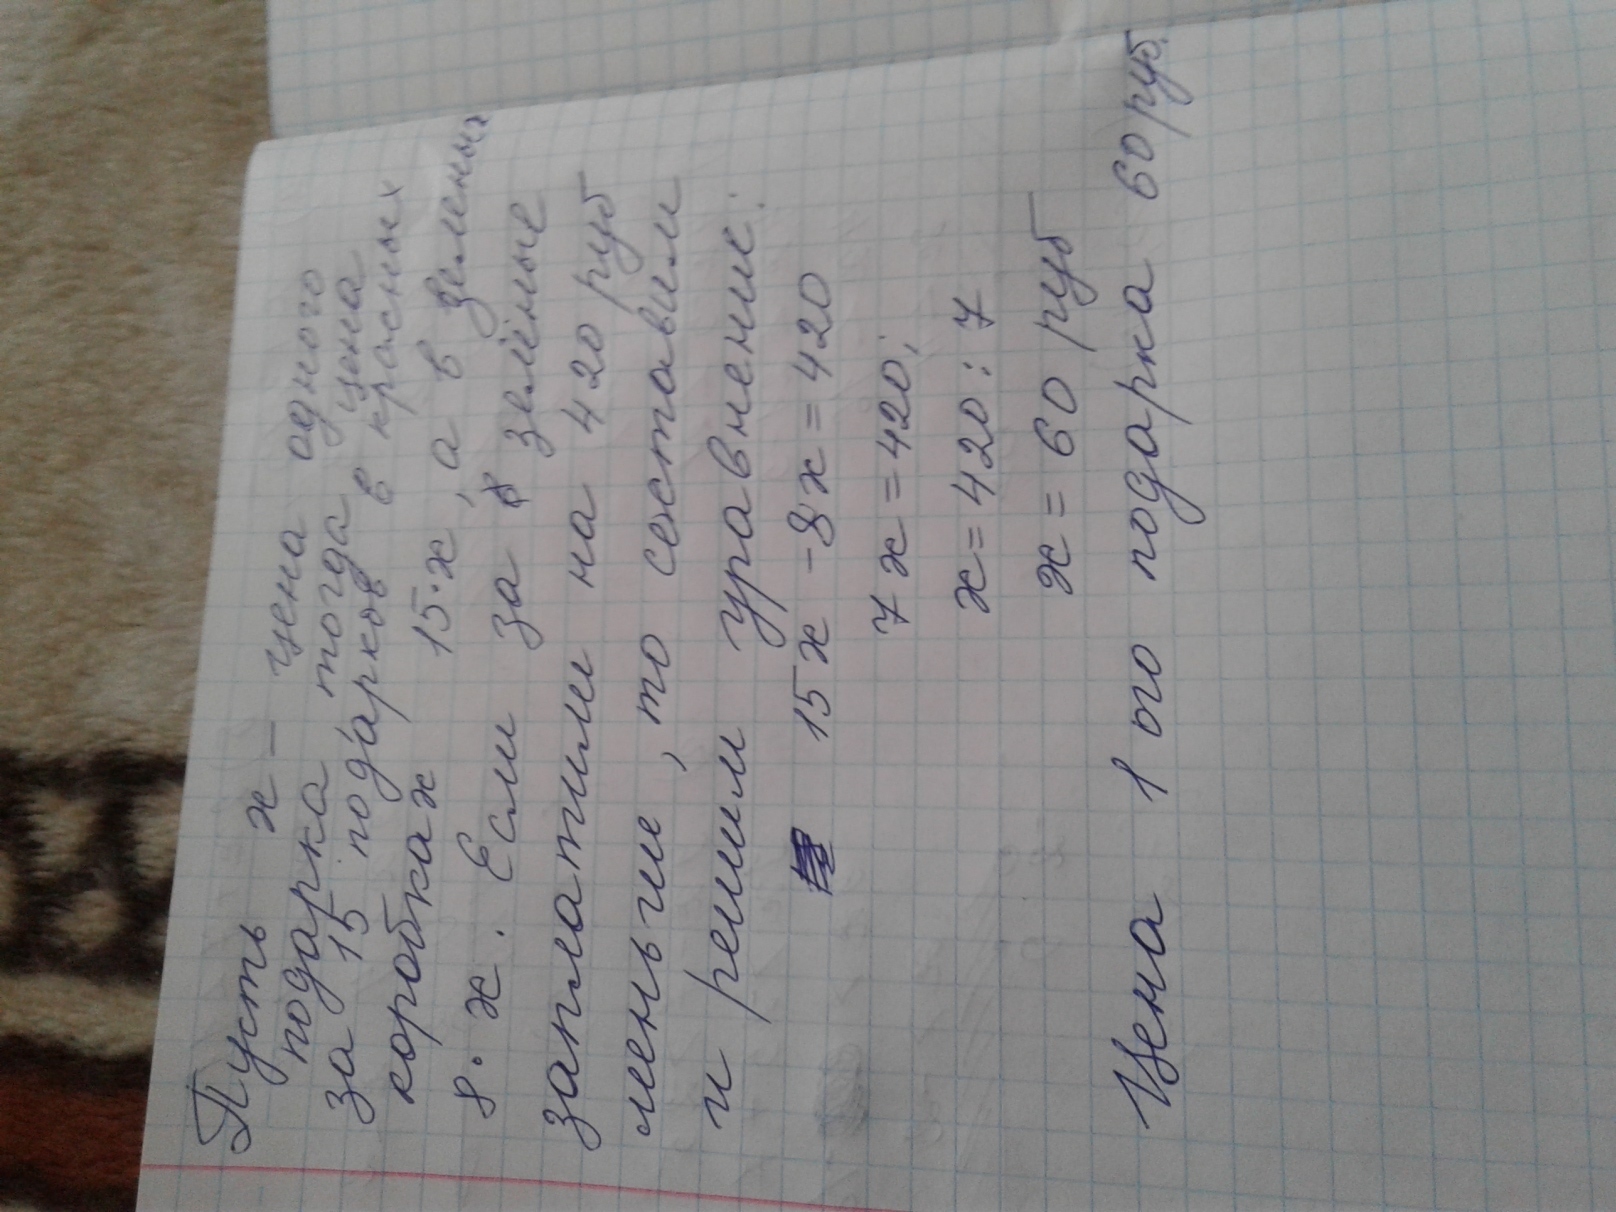 Пусть х – цена одного
подарка тогда цена
за 15 подарков в красных
коробках 15·х, а в зеленых
8·х. Если за зелёные
заплатили на 420 руб
меньше, то составим
и решим уравнение:
15х - 8х = 420
7х = 420;
х = 420 : 7
х = 60 руб
Цена 1 ого подарка 60 руб.